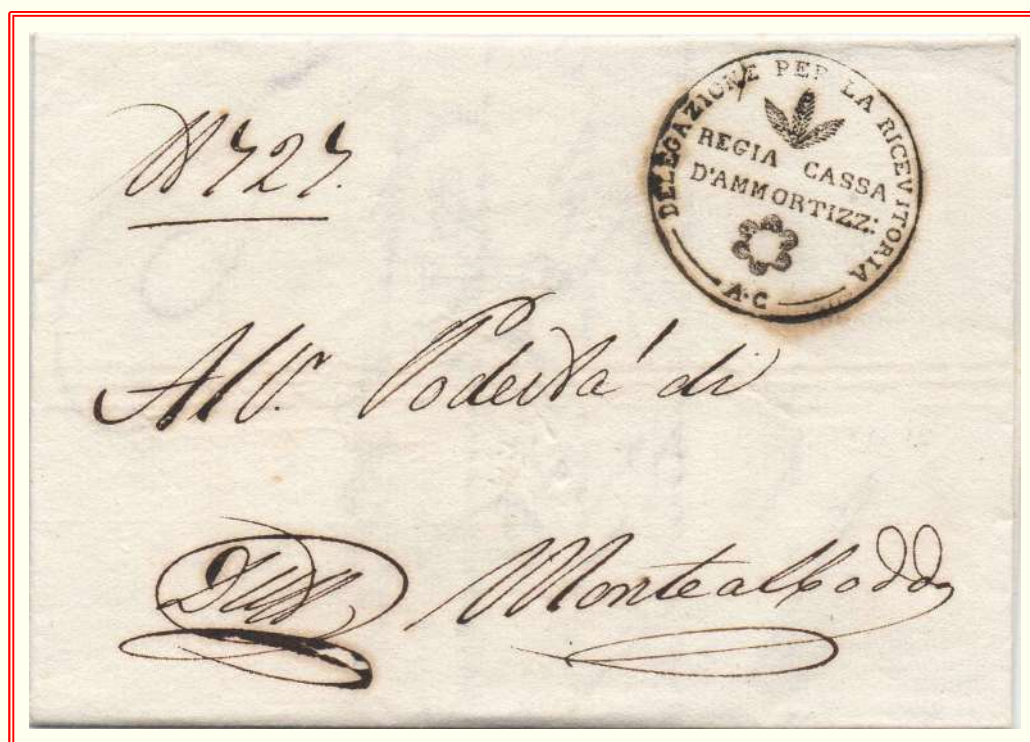 N 727.
DELEGAZIONE PER LA RICEVITORIA
REGIA CASSA
D'AMMORTIZZ:
A·C
Al Podestà di
Montealboddo